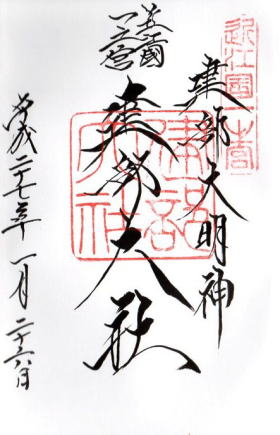 近江國一之宮
建部大明神
近江國
一之宮
建部大社
平成二十七年一月二十六日